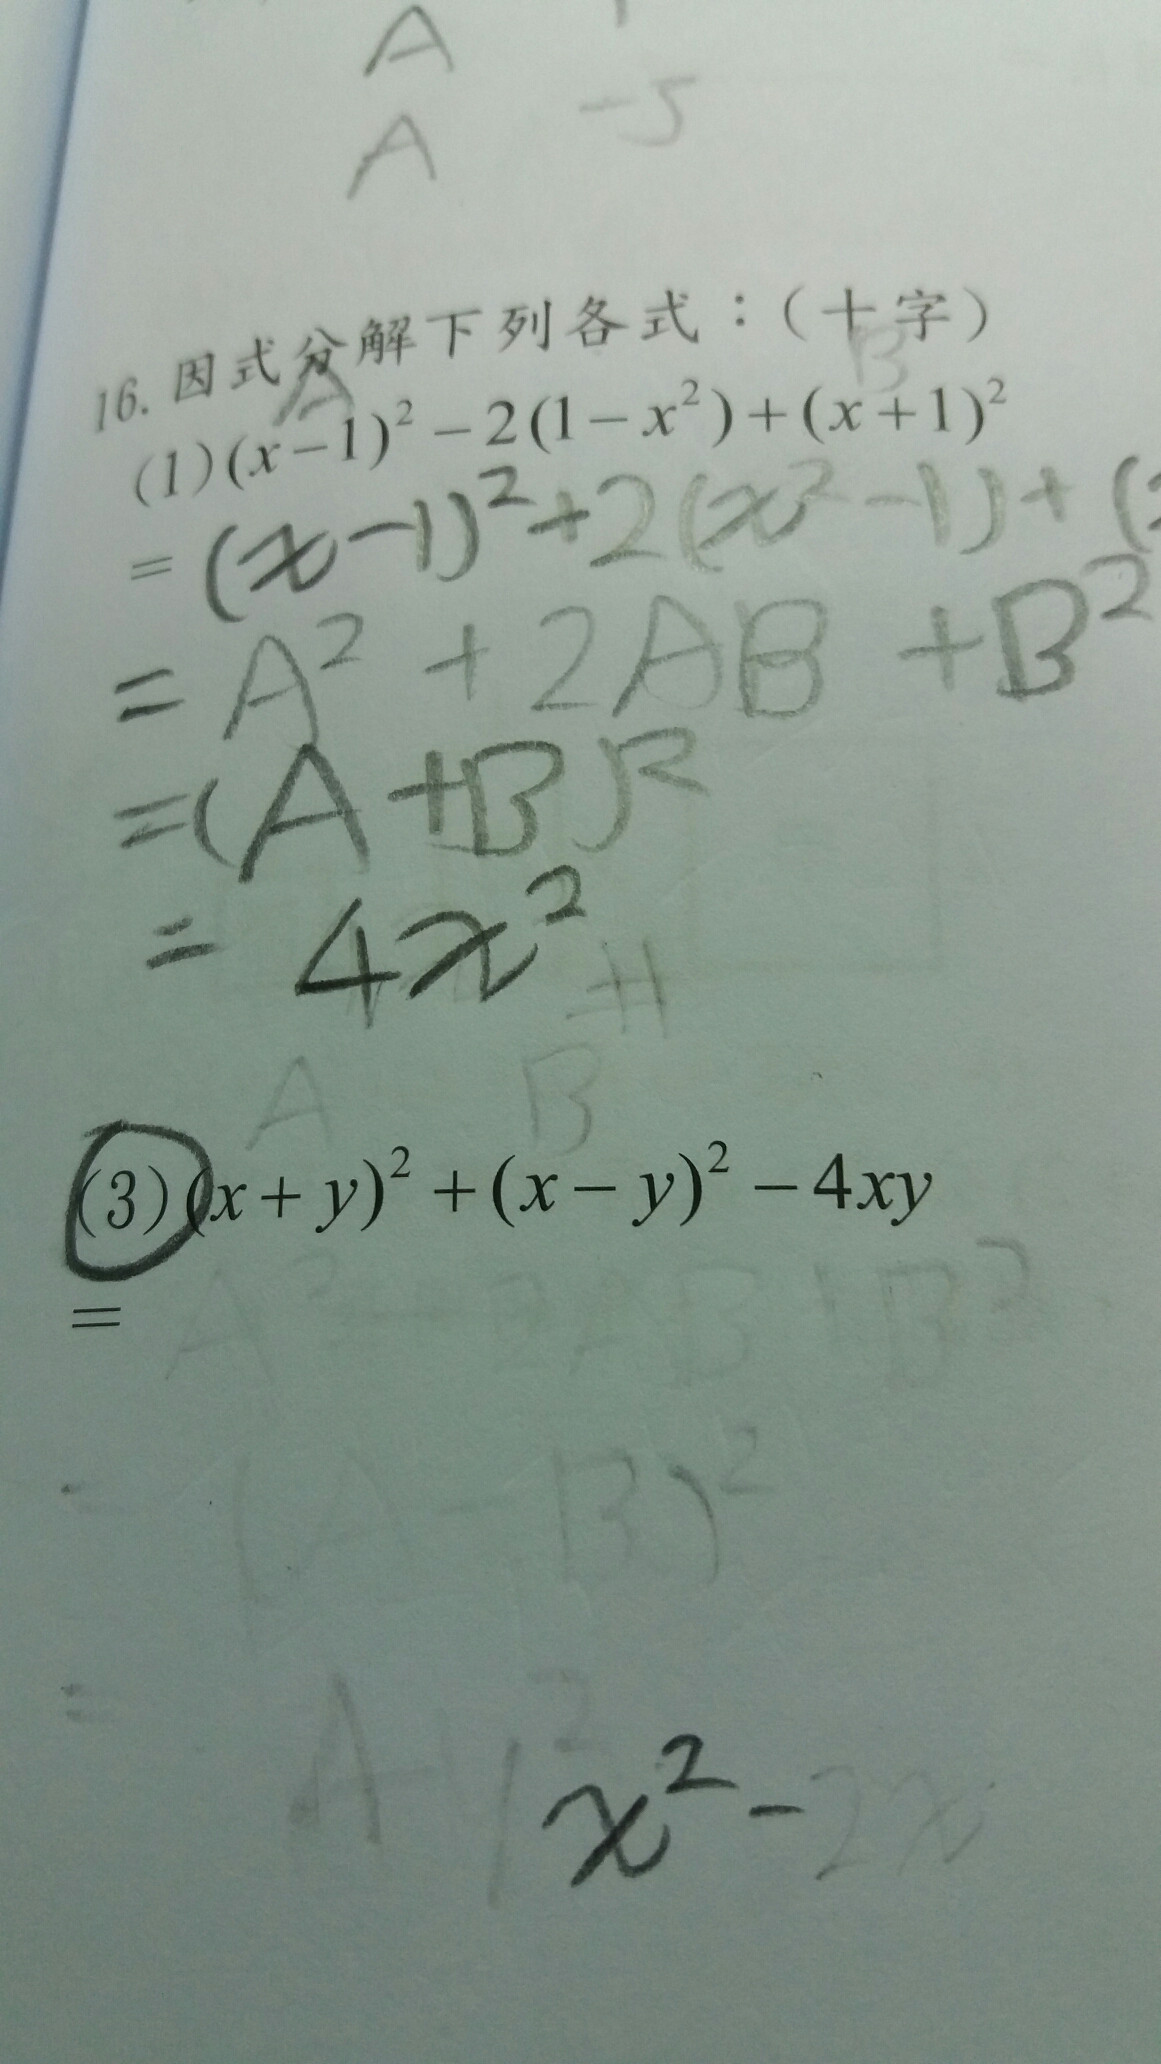 A
A -5
16. 因式分解下列各式：(十字)
A B
(1)(x-1)² - 2(1-x²) + (x+1)²
= (x-1)² + 2(x²-1) + (
= A² + 2AB + B²
= (A+B)²
= 4x²
A B
(3)(x+y)² + (x-y)² - 4xy
= A² - 2AB + B²
= (A - B)²
= A
x² - 2x